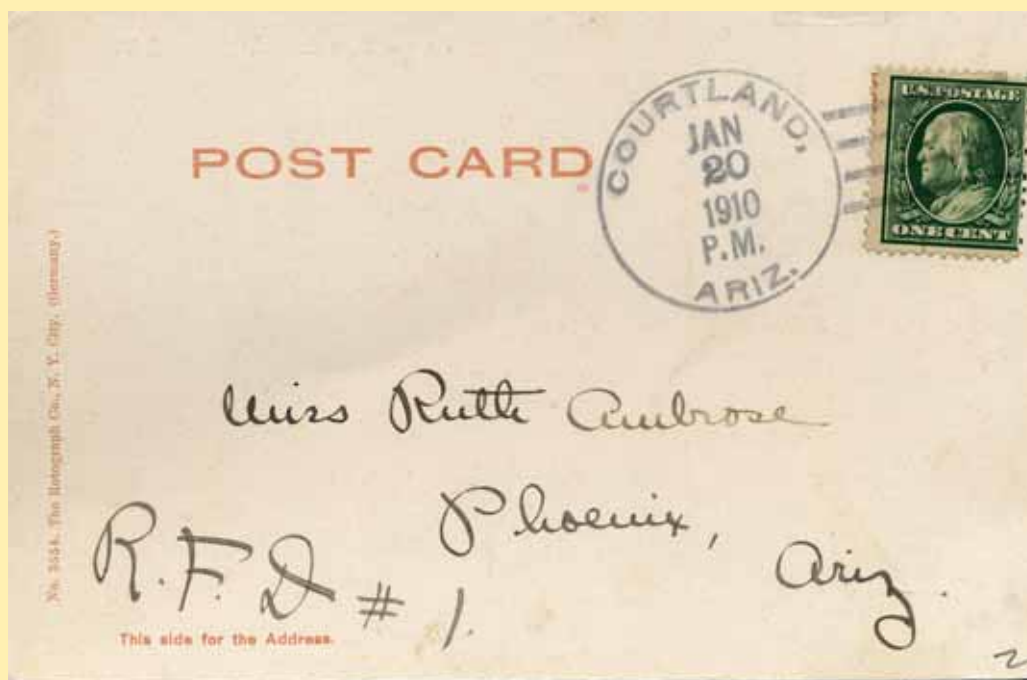 POST CARD
COURTLAND,
JAN
20
1910
P.M.
ARIZ.
U.S. POSTAGE
ONE CENT
No. 3554. The Rotograph Co., N. Y. City. (Germany.)
Miss Ruth Ambrose
Phoenix,
Ariz.
R.F.D #1.
This side for the Address.
2